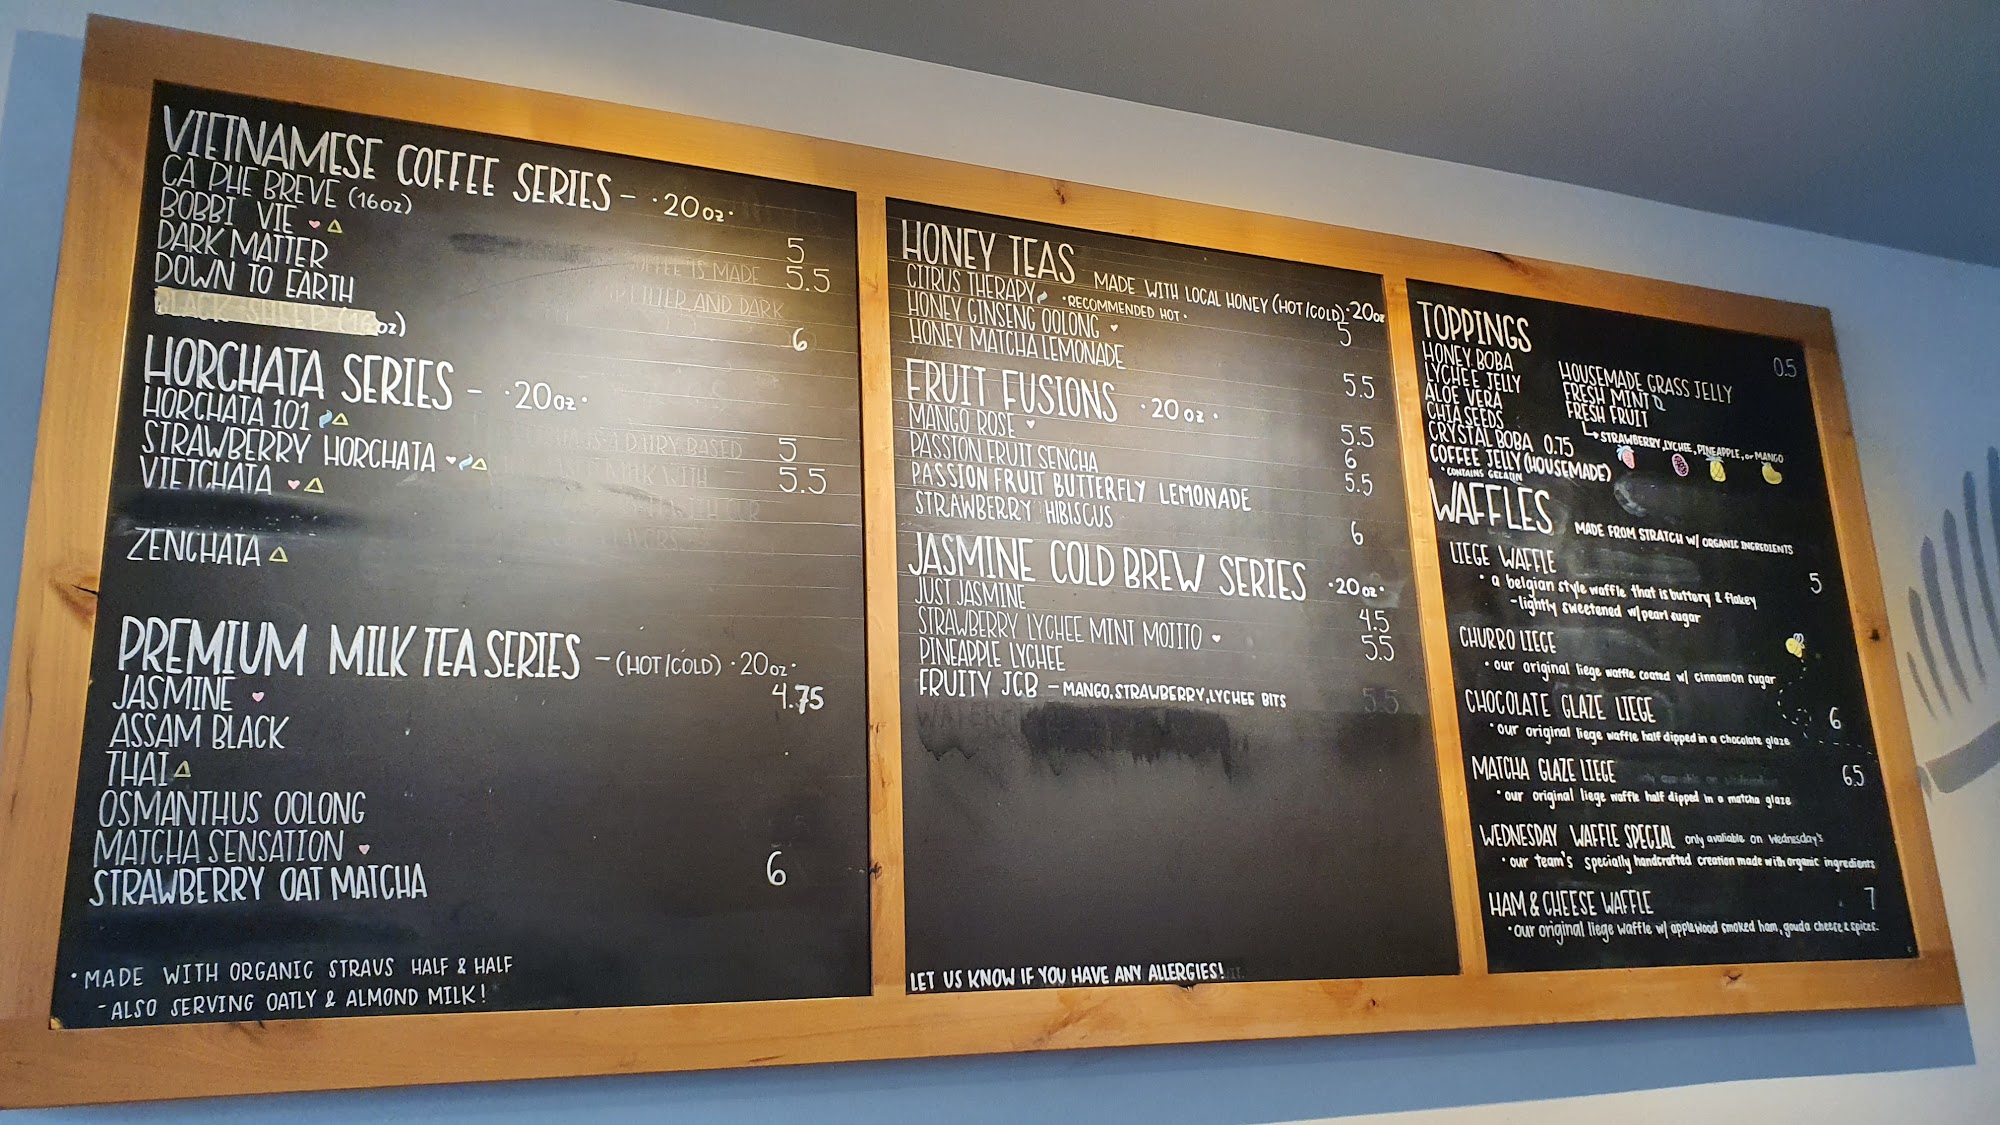 VIETNAMESE COFFEE SERIES - ·20oz·
CA PHE BREVE (16oz) 5
BOBBI VIE 5.5
DARK MATTER
DOWN TO EARTH
oz) 6
HORCHATA SERIES - ·20oz·
HORCHATA 101 5
STRAWBERRY HORCHATA 5.5
VIETCHATA
ZENCHATA
PREMIUM MILK TEA SERIES - (HOT/COLD) ·20oz·
JASMINE 4.75
ASSAM BLACK
THAI
OSMANTHUS OOLONG
MATCHA SENSATION
STRAWBERRY OAT MATCHA 6
·MADE WITH ORGANIC STRAUS HALF & HALF
-ALSO SERVING OATLY & ALMOND MILK!
HONEY TEAS MADE WITH LOCAL HONEY (HOT/COLD)·20oz
CITRUS THERAPY ·RECOMMENDED HOT· 5
HONEY GINSENG OOLONG
HONEY MATCHA LEMONADE 5.5
FRUIT FUSIONS ·20oz·
MANGO ROSE 5.5
PASSION FRUIT SENCHA 6
PASSION FRUIT BUTTERFLY LEMONADE 5.5
STRAWBERRY HIBISCUS 6
JASMINE COLD BREW SERIES ·20oz·
JUST JASMINE 4.5
STRAWBERRY LYCHEE MINT MOJITO 5.5
PINEAPPLE LYCHEE
FRUITY JCB - MANGO, STRAWBERRY, LYCHEE BITS 5.5
LET US KNOW IF YOU HAVE ANY ALLERGIES!
TOPPINGS 0.5
HONEY BOBA
LYCHEE JELLY
ALOE VERA
CHIA SEEDS
CRYSTAL BOBA 0.75
COFFEE JELLY (HOUSEMADE)
*CONTAINS GELATIN
HOUSEMADE GRASS JELLY
FRESH MINT
FRESH FRUIT
STRAWBERRY, LYCHEE, PINEAPPLE, or MANGO
WAFFLES MADE FROM STRATCH W/ ORGANIC INGREDIENTS
LIEGE WAFFLE 5
·a belgian style waffle that is buttery & flakey
-lightly sweetened w/pearl sugar
CHURRO LIEGE
·our original liege waffle coated w/ cinnamon sugar
CHOCOLATE GLAZE LIEGE 6
·our original liege waffle half dipped in a chocolate glaze
MATCHA GLAZE LIEGE 6.5
·our original liege waffle half dipped in a matcha glaze
WEDNESDAY WAFFLE SPECIAL only avaliable on Wednesday's
·our team's specially handcrafted creation made with organic ingredients
HAM & CHEESE WAFFLE 7
·our original liege waffle w/ applewood smoked ham, gouda cheese & spices.